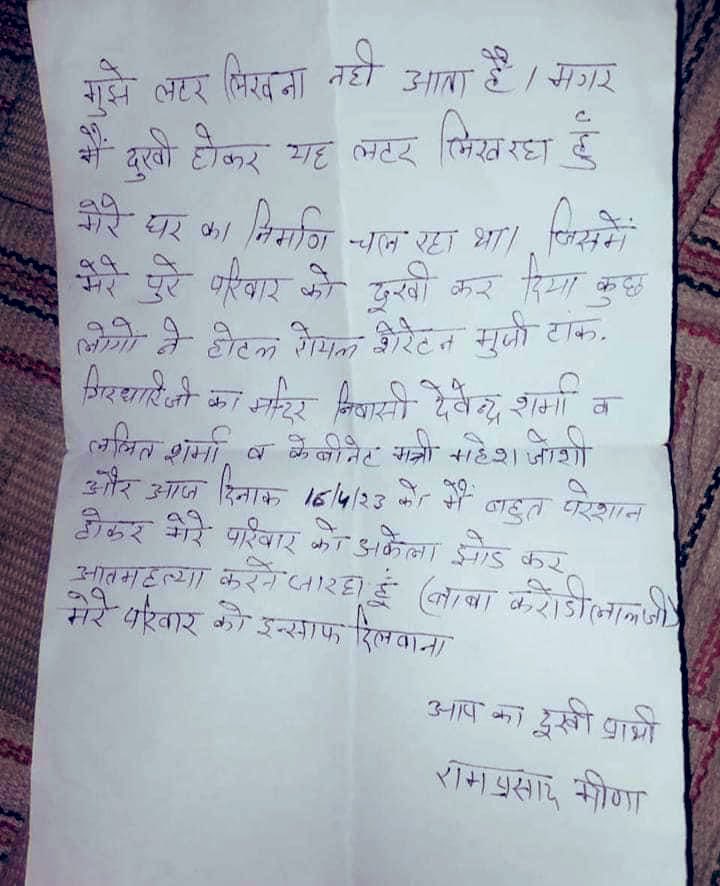 मुझे लटर लिखना नही आता है। मगर
मैं दुखी होकर यह लटर लिख रहा हुं
मेरे घर का निर्माण चल रहा था। जिसमें
मेरे पुरे परिवार को दूखी कर दिया कुछ
लोगो ने होटल रोयल शेरेटन मुजी टांक.
गिरधारीजी का मन्दिर निवासी देवेन्द्र शर्मा व
ललित शर्मा व केबीनेट मत्री महेश जोशी
और आज दिनाक 16/4/23 को मैं बहुत परेशान
होकर मेरे परिवार को अकेला झोड कर
आतमहत्या करने जा रहा हूं (बाबा करोडीलालजी)
मेरे परिवार को इन्साफ दिलवाना
आप का दूखी प्राथी
रामप्रसाद मीणा